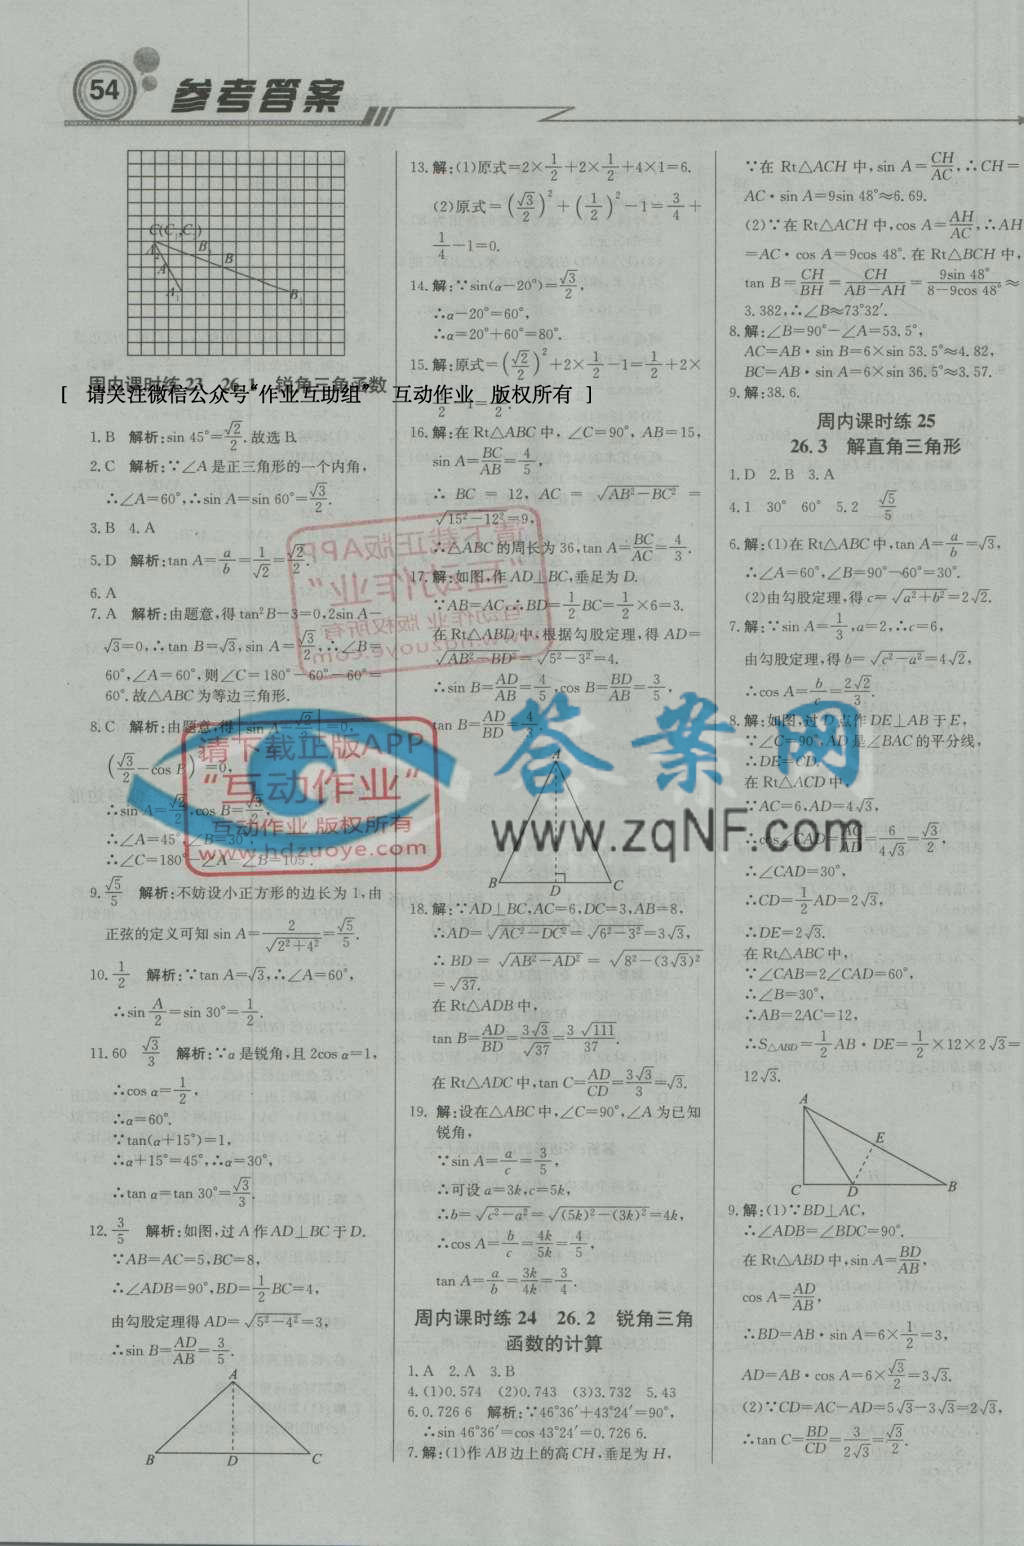 54
参考答案
C(C₁,C₂)
B₂
A₂
B
A
A₁
B₁
周内课时练 23 26.1 锐角三角函数
[ 请关注微信公众号“作业互助组” 互动作业 版权所有 ]
1.B 解析:sin 45°=√2/2.故选 B.
2.C 解析:∵∠A 是正三角形的一个内角,
∴∠A=60°,∴sin A=sin 60°=√3/2.
3.B 4.A
5.D 解析:tan A=a/b=1/√2=√2/2.
6.A
7.A 解析:由题意,得 tan²B-3=0,2sin A-
√3=0,∴tan B=√3,sin A=√3/2,∴∠B=
60°,∠A=60°,则∠C=180°-60°-60°=
60°.故△ABC 为等边三角形.
8.C 解析:由题意,得|sin A-√2/2|=0,
(√3/2-cos B)²=0,
∴sin A=√2/2,cos B=√3/2.
∴∠A=45°,∠B=30°.
∴∠C=180°-∠A-∠B=105°.
9.√5/5 解析:不妨设小正方形的边长为 1,由
正弦的定义可知 sin A=2/√(2²+4²)=√5/5.
10.1/2 解析:∵tan A=√3,∴∠A=60°,
∴sin A/2=sin 30°=1/2.
11.60 √3/3 解析:∵α 是锐角,且 2cos α=1,
∴cos α=1/2,
∴α=60°.
∵tan(α+15°)=1,
∴α+15°=45°,∴α=30°,
∴tan α=tan 30°=√3/3.
12.3/5 解析:如图,过 A 作 AD⊥BC 于 D.
∵AB=AC=5,BC=8,
∴∠ADB=90°,BD=1/2BC=4,
由勾股定理得 AD=√(5²-4²)=3,
∴sin B=AD/AB=3/5.
A
B D C
13.解:(1)原式=2×1/2+2×1/2+4×1=6.
(2)原式=(√3/2)²+(1/2)²-1=3/4+
1/4-1=0.
14.解:∵sin(α-20°)=√3/2,
∴α-20°=60°,
∴α=20°+60°=80°.
15.解:原式=(√2/2)²+2×1/2-1=1/2+2×
1/2-1=1/2.
16.解:在 Rt△ABC 中,∠C=90°,AB=15,
sin A=BC/AB=4/5,
∴BC=12,AC=√(AB²-BC²)=
√(15²-12²)=9,
∴△ABC 的周长为 36,tan A=BC/AC=4/3.
17.解:如图,作 AD⊥BC,垂足为 D.
∵AB=AC,∴BD=1/2BC=1/2×6=3.
在 Rt△ABD 中,根据勾股定理,得 AD=
√(AB²-BD²)=√(5²-3²)=4.
∴sin B=AD/AB=4/5,cos B=BD/AB=3/5,
tan B=AD/BD=4/3.
A
B D C
18.解:∵AD⊥BC,AC=6,DC=3,AB=8,
∴AD=√(AC²-DC²)=√(6²-3²)=3√3,
∴BD=√(AB²-AD²)=√(8²-(3√3)²)
=√37.
在 Rt△ADB 中,
tan B=AD/BD=3√3/√37=3√111/37.
在 Rt△ADC 中,tan C=AD/CD=3√3/3=√3.
19.解:设在△ABC 中,∠C=90°,∠A 为已知
锐角,
∵sin A=a/c=3/5,
∴可设 a=3k,c=5k,
∴b=√(c²-a²)=√((5k)²-(3k)²)=4k,
∴cos A=b/c=4k/5k=4/5,
tan A=a/b=3k/4k=3/4.
周内课时练 24 26.2 锐角三角
函数的计算
1.A 2.A 3.B
4.(1)0.574 (2)0.743 (3)3.732 5.43
6.0.726 6 解析:∵46°36′+43°24′=90°,
∴sin 46°36′=cos 43°24′=0.726 6.
7.解:(1)作 AB 边上的高 CH,垂足为 H,
∵在 Rt△ACH 中,sin A=CH/AC,∴CH=
AC·sin A=9sin 48°≈6.69.
(2)∵在 Rt△ACH 中,cos A=AH/AC,∴AH
=AC·cos A=9cos 48°.在 Rt△BCH 中,
tan B=CH/BH=CH/(AB-AH)=9sin 48°/(8-9cos 48°)≈
3.382,∴∠B≈73°32′.
8.解:∠B=90°-∠A=53.5°,
AC=AB·sin B=6×sin 53.5°≈4.82,
BC=AB·sin A=6×sin 36.5°≈3.57.
9.解:38.6.
周内课时练 25
26.3 解直角三角形
1.D 2.B 3.A
4.1 30° 60° 5.2 √5/5
6.解:(1)在 Rt△ABC 中,tan A=a/b=√3,
∴∠A=60°,∠B=90°-60°=30°.
(2)由勾股定理,得 c=√(a²+b²)=2√2.
7.解:∵sin A=1/3,a=2,∴c=6,
由勾股定理,得 b=√(c²-a²)=4√2,
∴cos A=b/c=2√2/3.
8.解:如图,过 D 点作 DE⊥AB 于 E,
∵∠C=90°,AD 是∠BAC 的平分线,
∴DE=CD.
在 Rt△ACD 中,
∵AC=6,AD=4√3,
∴cos∠CAD=AC/AD=6/4√3=√3/2,
∴∠CAD=30°,
∴CD=1/2AD=2√3,
∴DE=2√3.
在 Rt△ABC 中,
∵∠CAB=2∠CAD=60°,
∴∠B=30°,
∴AB=2AC=12,
∴S△ABD=1/2AB·DE=1/2×12×2√3=
12√3.
A
E
C D B
9.解:(1)∵BD⊥AC,
∴∠ADB=∠BDC=90°.
在 Rt△ABD 中,sin A=BD/AB,
cos A=AD/AB,
∴BD=AB·sin A=6×1/2=3,
AD=AB·cos A=6×√3/2=3√3.
(2)∵CD=AC-AD=5√3-3√3=2√3,
∴tan C=BD/CD=3/2√3=√3/2.
请下载正版APP
“互动作业”
互动作业 版权所有
www.hdzuoye.com
请下载正版APP
“互动作业”
互动作业 版权所有
www.hdzuoye.com
答案网
www.zqNF.com